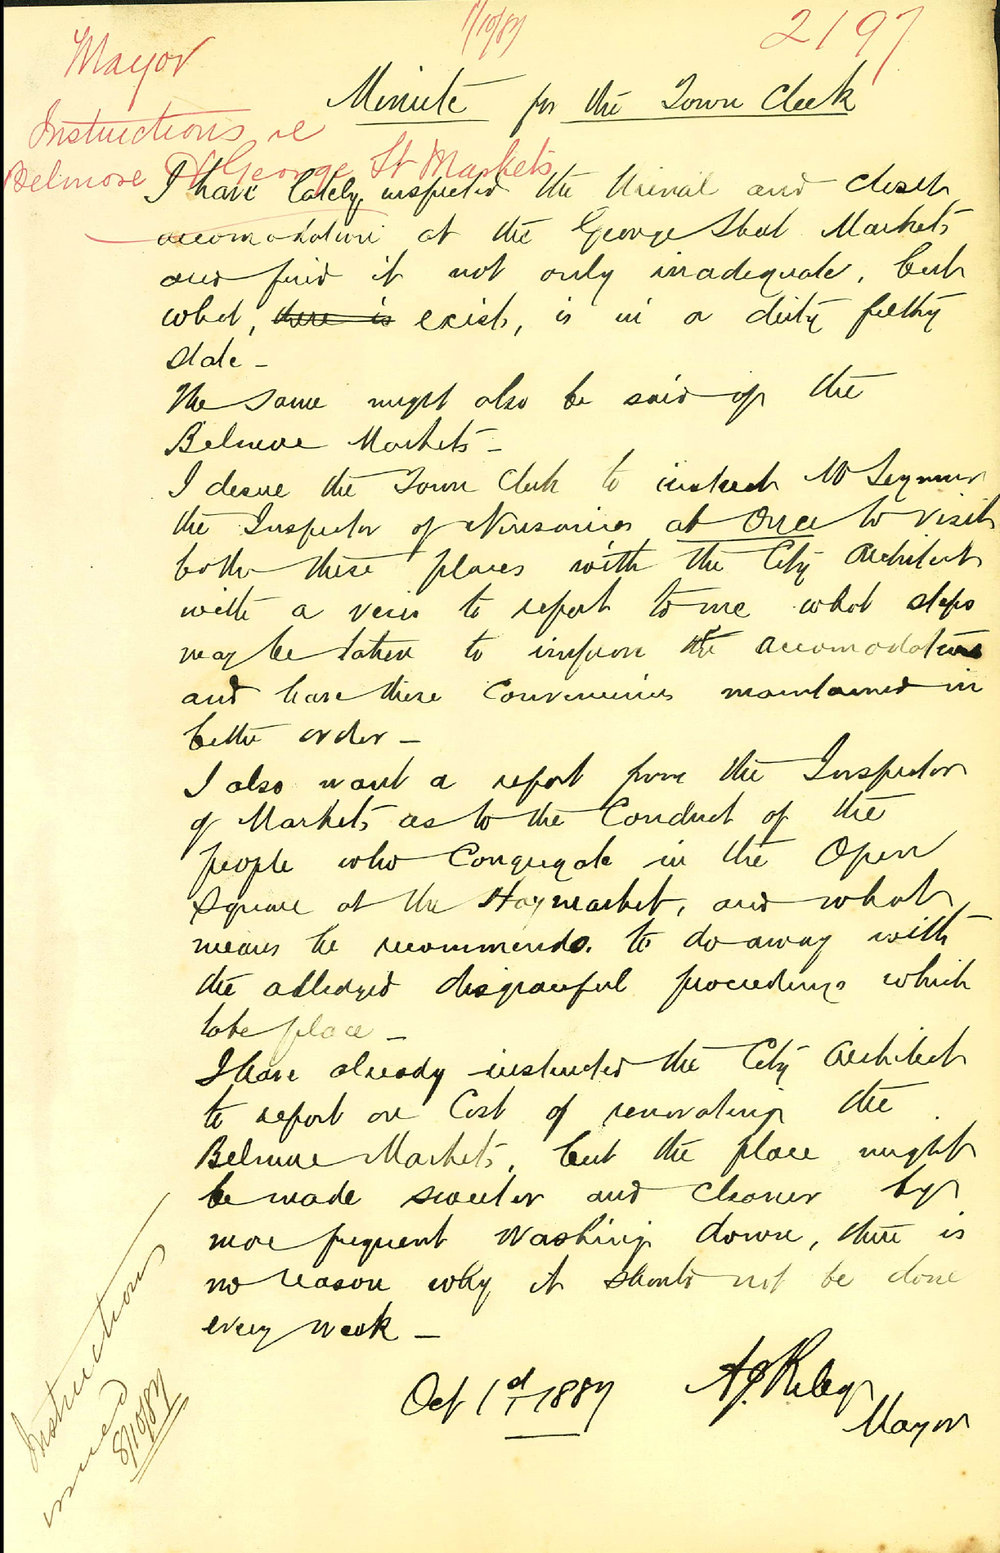 1/10/87
2197
Mayor
Instructions re
Belmore & George St Markets
Minute for the Town Clerk
I have lately inspected the Urinal and closet
accomodation at the George Street Markets
and find it not only inadequate, but
what, there is exists, is in a dirty filthy
state -
The same might also be said of the
Belmore Markets -
I desire the Town Clerk to instruct Mr Seymour
the Inspector of Nuisances at Once to visit
both these places with the City Architect
with a view to report to me what steps
may be taken to improve the accomodation
and have these Conveniences maintained in
better order -
I also want a report from the Inspector
of Markets as to the Conduct of the
people who Congregate in the Open
Square at the Haymarket, and what
means he recommends to do away with
the alledged disgraceful proceedings which
take place -
I have already instructed the City Architect
to report on Cost of renovating the
Belmore Markets, but the place might
be made sweeter and cleaner by
more frequent Washing down, there is
no reason why it should not be done
every week -
Oct 1st 1887
A J Riley
Mayor
Instructions
issued
8/10/87